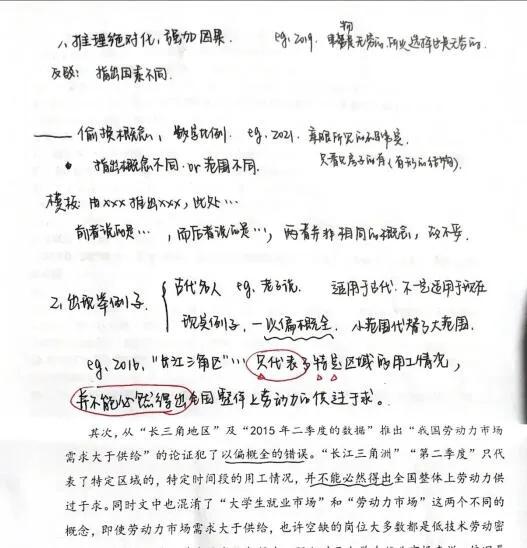 1、推理绝对化，强加因果.
eg. 2019. 物是无穷的.所以选择也是无穷的.
反驳：指出因素不同.
偷换概念， 数与比例. eg. 2021. 亲眼所见的不是事实.
• 指出概念不同.or 范围不同. 只看见房子的有(有形的结构).
模板：由xxx推出xxx，此处…
前者说的是…，而后者说的是…，两者并非相同的概念，故不妥.
2、出现举例子. 古代名人 eg. 老子说. 适用于古代.不一定适用于现在
现实例子，—以偏概全. 小范围代替了大范围.
eg. 2016，“长江三角区”…只代表了特定区域的用工情况，
并不能必然得出全国整体上劳动力的供过于求。
其次，从“长三角地区”及“2015 年二季度的数据”推出“我国劳动力市场
需求大于供给”的论证犯了以偏概全的错误。“长江三角洲”“第二季度”只代
表了特定区域的，特定时间段的用工情况，并不能必然得出全国整体上劳动力供
过于求。同时文中也混淆了“大学生就业市场”和“劳动力市场”这两个不同的
概念，即使劳动力市场需求大于供给，也许空缺的岗位大多数都是低技术劳动密